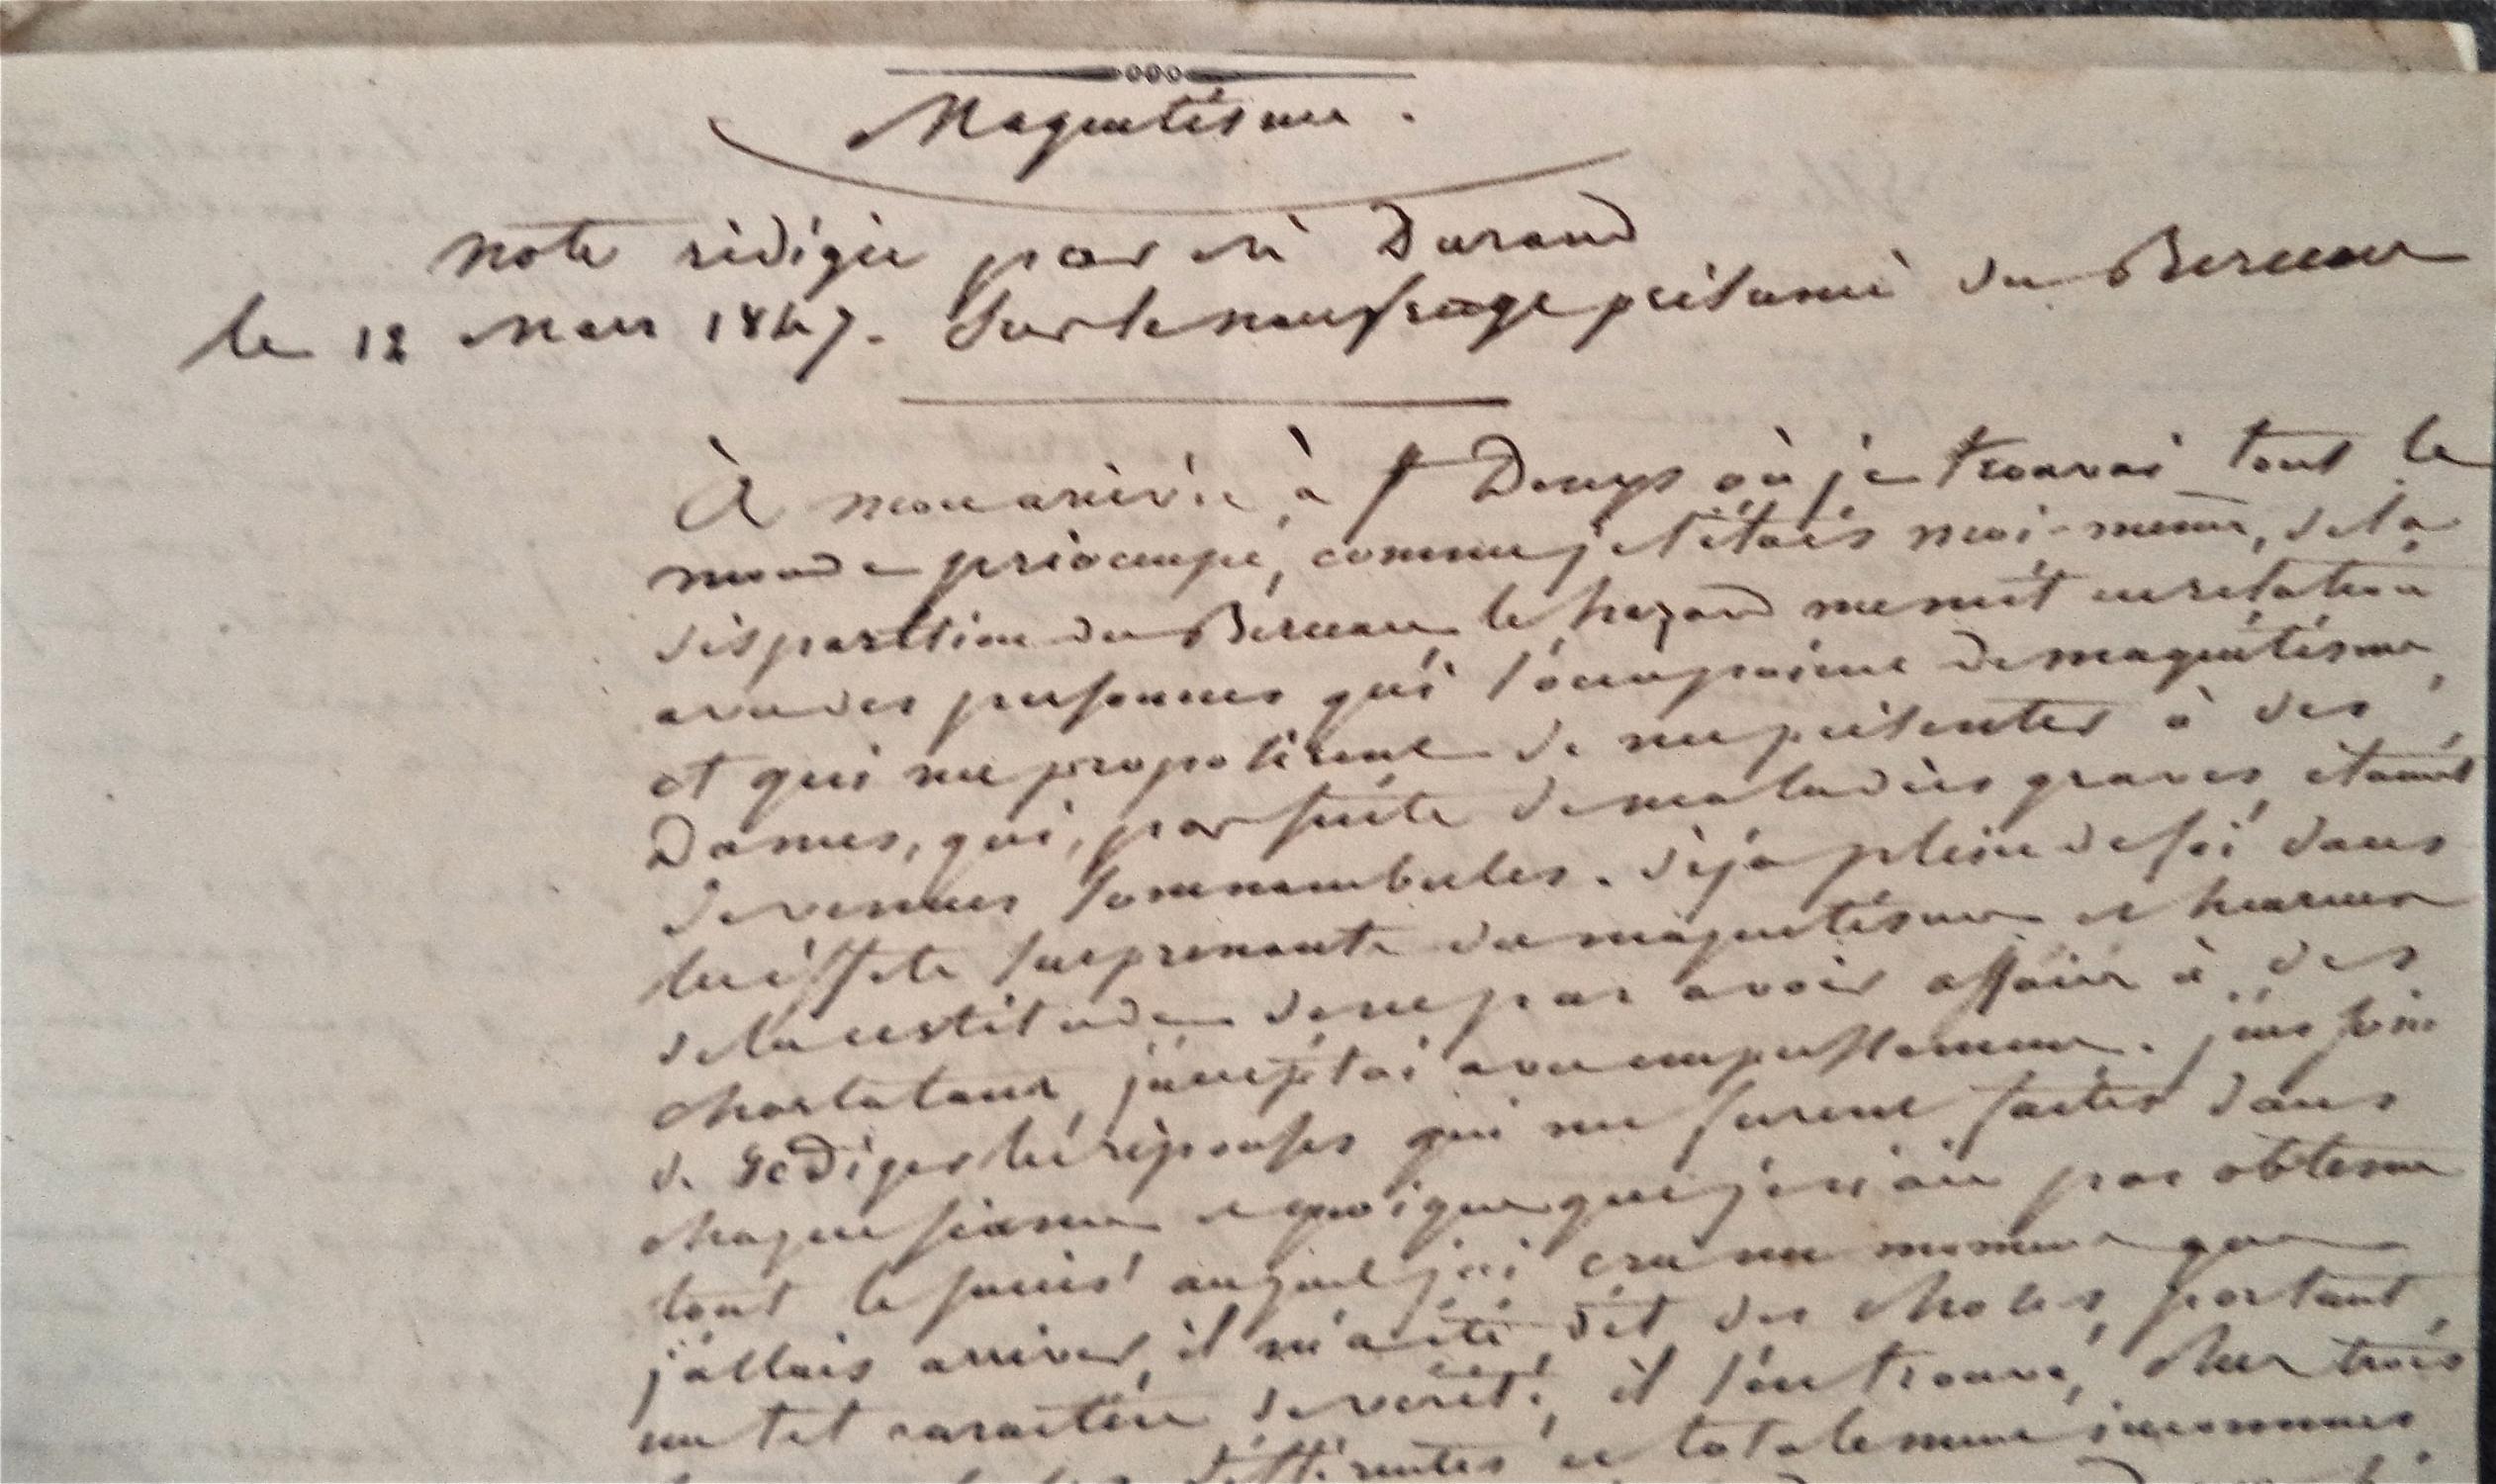 Magnétisme.
note rédigée par Mr Durand
le 12 Mars 1847. Sur le naufrage présumé du Berceau
À mon arrivée, à St Denys où je trouvai tout le
monde préoccupé, comme je l'étais moi-même, de la
disparition du Berceau, le hazard me mit en relation
avec des personnes qui s'occupaient de magnétisme,
et qui me proposèrent de me présenter à des
Dames, qui, par suite de maladies graves, étaient
devenues somnambules. déjà plein de foi dans
les éffets surprenants du magnétisme et heureux
de la certitude de ne pas avoir affaire à des
charlatans, j'acceptai avec empressement. j'eus soin
de rédiger les réponses qui me furent faites dans
chaque séance et quoique que je n'aie pas obtenu
tout le succès auquel j'ai cru un moment que
j'allais arriver, il m'a été dit des choses, portant
un tel caractère de vérité, il s'en trouve, chez trois
différentes et totalement inconnues